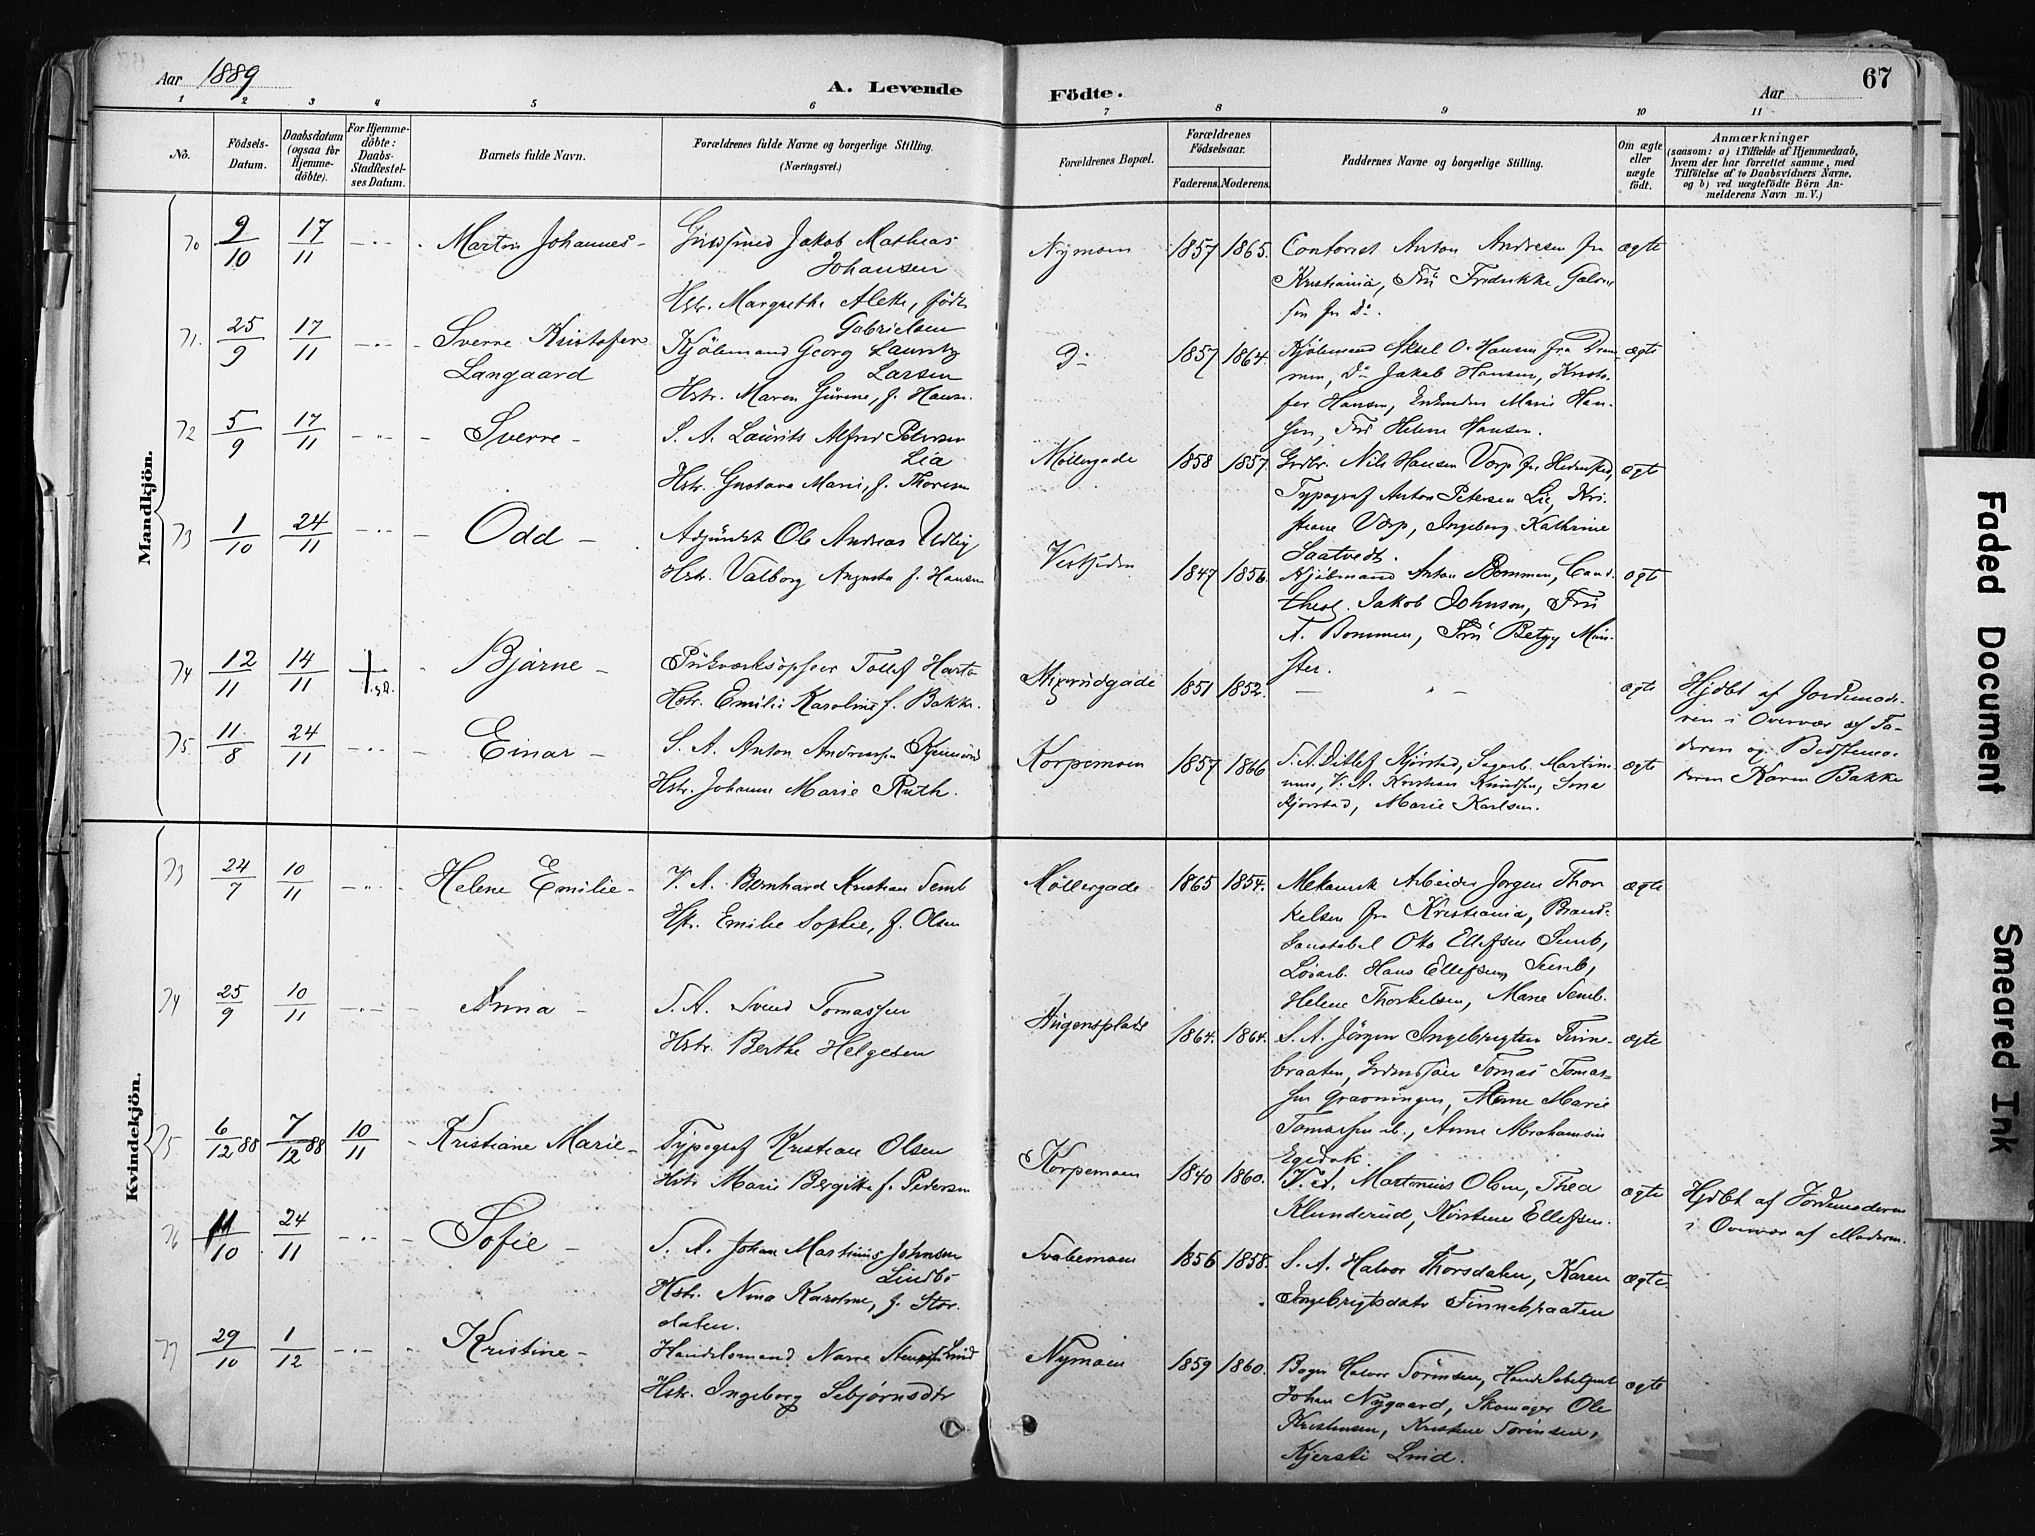 Aar 1889
A. Levende Födte.
Aar
67
1 2 3 4 5 6 7 8 9 10 11
No.
Födsels-Datum.
Daabsdatum (ogsaa for Hjemme-döbte).
For Hjemme-döbte: Daabs-Stadfæstel-ses Datum.
Barnets fulde Navn.
Forældrenes fulde Navne og borgerlige Stilling.
(Næringsvei.)
Forældrenes Bopæl.
Forældrenes Födselsaar.
Faderens. Moderens.
Faddernes Navne og borgerlige Stilling.
Om ægte eller uægte födt.
Anmærkninger
(saasom: a) i Tilfælde af Hjemmedaab,
hvem der har forrettet samme, med
Tilföielse af to Daabsvidners Navne,
og b) ved uægtefödte Börn An-
melderens Navn m. V.)
Mandkjön.
70 9/10 17/11 Martin Johannes
Jakob Mathias
Johansen
Hstr. Margrethe Aleth, födt
Gabrielsen
Nymoen 1857 1865.
Contorist Anton Andresen fra
Kristiania, Frü Fredrikke
fra Do.
ægte
71. 25/9 17/11 Sverre Kristofer
Langaard
Kjöbmand Georg Lauritz
Larsen
Hstr. Maren Gurine, f. Hansen
Do 1857 1864.
Kjöbmand Aksel O. Hansen fra Dram-
men, Do Jakob Hansen, Kristo-
fer Hansen, Enkemadam Marie Han-
sen, Frü Helene Hansen.
ægte
72 5/9 17/11 Sverre
S. A. Laurits Alfred Petersen
Lia
Hstr. Gustava Marie, f. Thoresen
Møllergade 1858 1857
Grdbr. Nils Hansen Vorp fra Hedensted,
Typograf Anton Petersen Lie, Kri-
stiane Vorp, Ingeborg Kathrine
Saatvedt.
ægte
73 1/10 24/11 Odd
Adjünkt Ole Andreas
Hstr. Valborg Augusta f. Hansen
Vestsiden 1847 1856.
Kjöbmand Anton Bommen, Cand.
theol. Jakob Johnson, Frü
A. Bommen, Frü Betzy Mün-
ster.
ægte
74 12/11 14/11 Bjarne
Tollef
Hstr. Emilie Karoline f. Bakke.
Myrrudgade 1851 1852.
ægte
Hjdbt af Jordemode-
ren i Overvær af Fa-
deren og Bedstemo-
deren Karen Bakke
75 11/8 24/11 Einar
S. A. Anton Andreassen
Hstr. Johanne Marie Ruth.
Korpemoen 1857 1866
S. A. Ditlef Kjörstad, Sagarb. Martin-
nus, V. A. Kristian Knudsen, Lina
Kjorstad, Marie Karlsen.
ægte
Kvindekjön.
73 24/7 10/11 Helene Emilie
V. A. Bernhard Kristian Semb
Hstr. Emilie Sophie, f. Olsen
Møllergade 1865 1854.
Mekanisk Arbeider Jørgen Thor-
kelsen fra Kristiania, Brand-
konstabel Otto Ellefsen Semb,
Løsarb. Hans Ellefsen Semb,
Helene Thorkelsen, Marie Semb.
ægte
74 25/9 10/11 Anna
S. A. Svend Tomassen
Hstr. Berthe Helgesen
Haugensplads 1864. 1864.
S. A. Jörgen Ingebrigtsen Finne-
braaten, Tomas Tomas-
sen Gravningen, Anne Marie
Tomassen ib., Anne Abrahamsen
Egedok.
ægte
75 6/12 88 7/12 88 10/11 Kristiane Marie
Typograf Kristian Olsen
Hstr. Marie Bergitte f. Pedersen
Korpemoen 1840 1860.
V. A. Martinius Olsen, Thea
Klunderud, Kirstine Ellefsen.
ægte
Hjdbt af Jordemoderen
i Overvær af Moderen.
76 11/10 24/11 Sofie
S. A. Johan Martinius Johnsen
Lindbo
Hstr. Nina Karoline, f. Stor-
dalen.
Svabemoen 1856 1858.
S. A. Halvor Thorsdalen, Karen
Ingebrigtsdatr Finnebraaten
ægte
77 29/10 1/12 Kristine
Handelsmand Narve Lind
Hstr. Ingeborg Sebjørnsdtr
Nymoen 1859 1860.
Bager Halvor Sörensen,
Johan Nygaard, Skomager Ole
Kristensen, Kristine Sörensen,
Kjersti Lind.
ægte
Faded Document
Smeared Ink